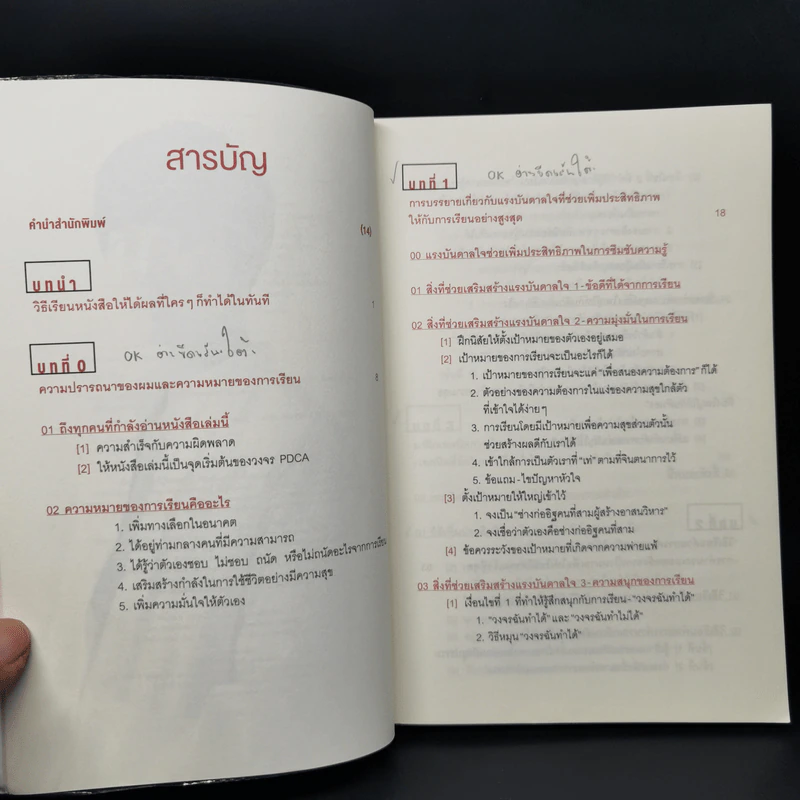 สารบัญ
คำนำสำนักพิมพ์
(14)
บทนำ
วิธีเรียนหนังสือให้ได้ผลที่ใครๆ ก็ทำได้ในทันที
1
บทที่ 0
OK
ความปรารถนาของผมและความหมายของการเรียน
8
01 ถึงทุกคนที่กำลังอ่านหนังสือเล่มนี้
[1] ความสำเร็จกับความผิดพลาด
[2] ให้หนังสือเล่มนี้เป็นจุดเริ่มต้นของวงจร PDCA
02 ความหมายของการเรียนคืออะไร
1. เพิ่มทางเลือกในอนาคต
2. ได้อยู่ท่ามกลางคนที่มีความสามารถ
3. ได้รู้ว่าตัวเองชอบ ไม่ชอบ ถนัด หรือไม่ถนัดอะไรจากการเรียน
4. เสริมสร้างกำลังในการใช้ชีวิตอย่างมีความสุข
5. เพิ่มความมั่นใจให้ตัวเอง
บทที่ 1
OK
การบรรยายเกี่ยวกับแรงบันดาลใจที่ช่วยเพิ่มประสิทธิภาพ
ให้กับการเรียนอย่างสูงสุด
18
00 แรงบันดาลใจช่วยเพิ่มประสิทธิภาพในการซึมซับความรู้
01 สิ่งที่ช่วยเสริมสร้างแรงบันดาลใจ 1-ข้อดีที่ได้จากการเรียน
02 สิ่งที่ช่วยเสริมสร้างแรงบันดาลใจ 2-ความมุ่งมั่นในการเรียน
[1] ฝึกนิสัยให้ตั้งเป้าหมายของตัวเองอยู่เสมอ
[2] เป้าหมายของการเรียนจะเป็นอะไรก็ได้
1. เป้าหมายของการเรียนจะแค่ "เพื่อสนองความต้องการ" ก็ได้
2. ตัวอย่างของความต้องการในแง่ของความสุขใกล้ตัว
ที่เข้าใจได้ง่ายๆ
3. การเรียนโดยมีเป้าหมายเพื่อความสุขส่วนตัวนั้น
ช่วยสร้างผลดีกับเราได้
4. เข้าใกล้การเป็นตัวเราที่ "เท่" ตามที่จินตนาการไว้
5. ข้อแถม-ไขปัญหาหัวใจ
[3] ตั้งเป้าหมายให้ใหญ่เข้าไว้
1. จงเป็น "ช่างก่ออิฐคนที่สามผู้สร้างอาสนวิหาร"
2. จงเชื่อว่าตัวเองคือช่างก่ออิฐคนที่สาม
[4] ข้อควรระวังของเป้าหมายที่เกิดจากความพ่ายแพ้
03 สิ่งที่ช่วยเสริมสร้างแรงบันดาลใจ 3-ความสนุกของการเรียน
[1] เงื่อนไขที่ 1 ที่ทำให้รู้สึกสนุกกับการเรียน-"วงจรฉันทำได้"
1. "วงจรฉันทำได้" และ "วงจรฉันทำไม่ได้"
2. วิธีหมุน "วงจรฉันทำได้"